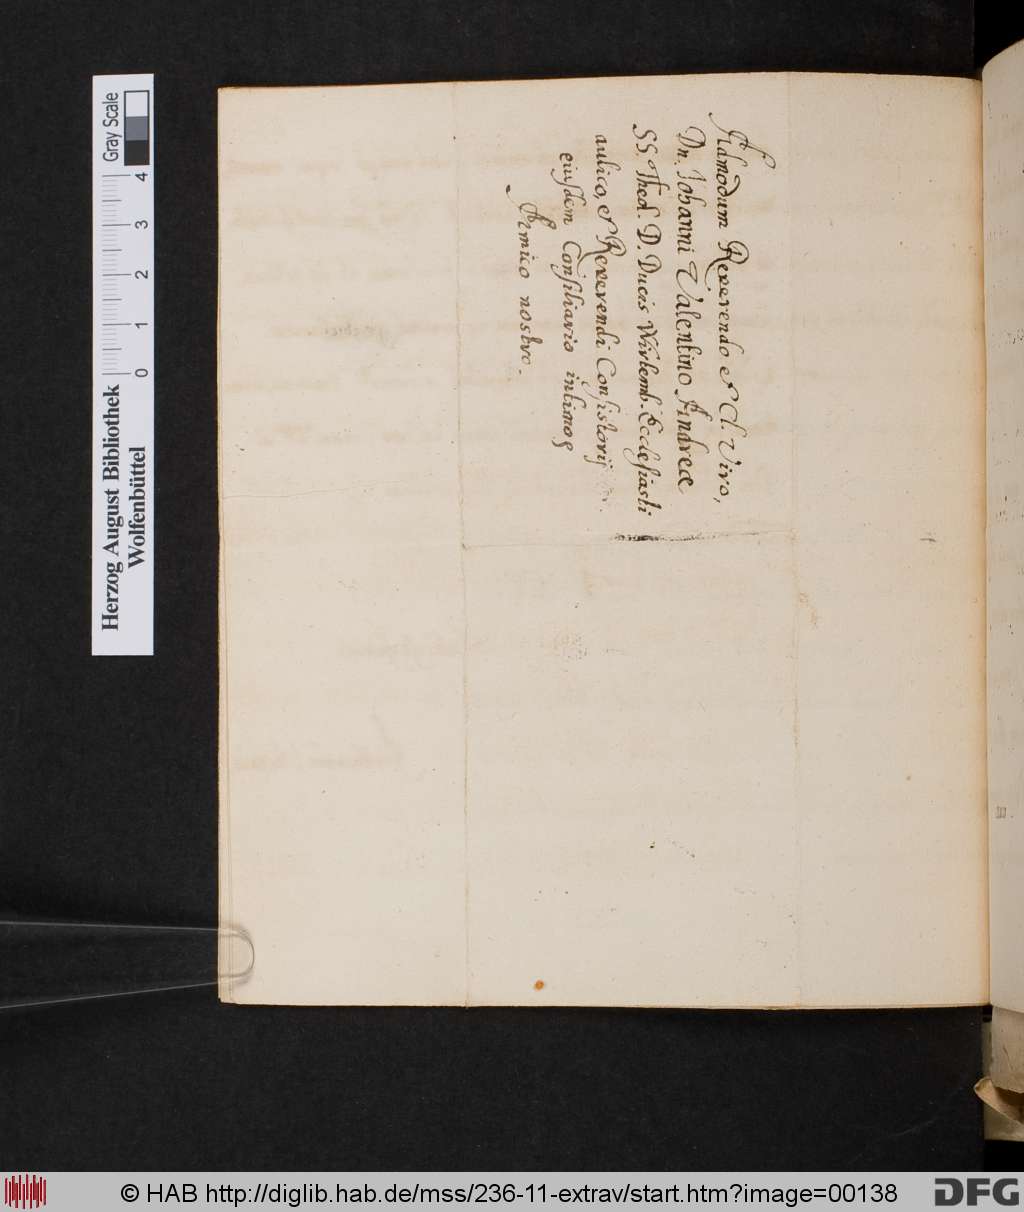 Admodum Reverendo et Cl. Viro,
Dn. Johanni Valentino Andreæ
SS. Theol. D. Ducis Wirtemb. Ecclesiasti
aulico, et Reverendi Consistorij
eiusdem Consiliario intimo
Amico nostro.
Herzog August Bibliothek
Wolfenbüttel
0 1 2 3 4
Gray Scale
© HAB http://diglib.hab.de/mss/236-11-extrav/start.htm?image=00138
DFG